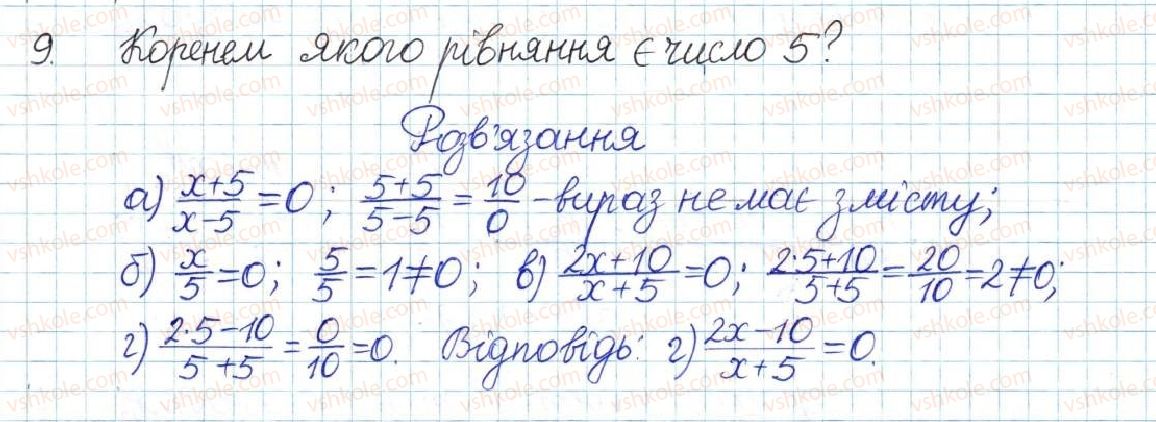 9. Коренем якого рівняння є число 5?
Розв'язання
а) (x+5)/(x-5) = 0; (5+5)/(5-5) = 10/0 - вираз не має змісту;
б) x/5 = 0; 5/5 = 1 ≠ 0; в) (2x+10)/(x+5) = 0; (2·5+10)/(5+5) = 20/10 = 2 ≠ 0;
г) (2·5-10)/(5+5) = 0/10 = 0. Відповідь: г) (2x-10)/(x+5) = 0.